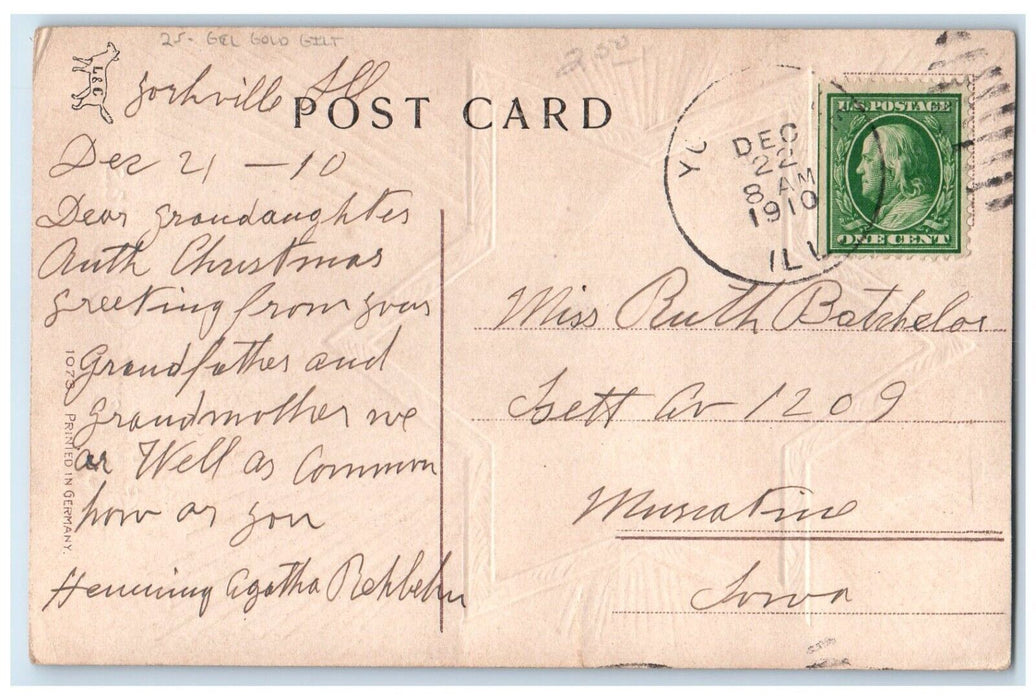 25- GEL GOLD GILT
2.50
L & C
POST CARD
Yorkville Ill
Dec 21 - 10
Dear Grandaughter
Ruth Christmas
Greeting from your
Grandfather and
Grandmother we
ar Well as Common
how ar you
Henning Agatha Rehbehn
1073 PRINTED IN GERMANY.
DEC
22
8 AM
1910
ILL
U.S. POSTAGE
ONE CENT
Miss Ruth Batchelor
Isett Av 1209
Muscatine
Iowa